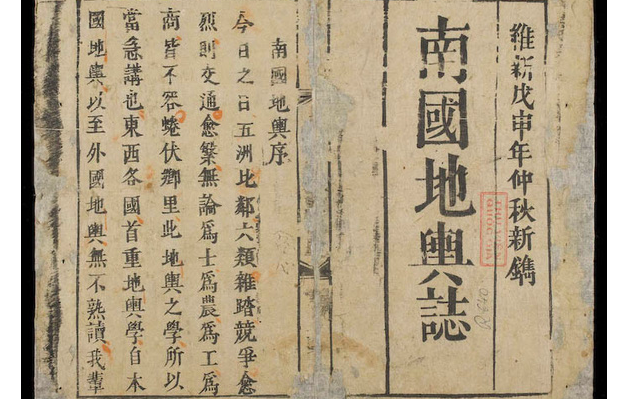 維新戊申年仲秋新鐫
南國地輿誌
南國地輿序
今日之日五洲比鄰六類雜踏競爭愈
烈則交通愈繁無論爲士爲農爲工爲
商皆不容蜷伏鄉里此地輿之學所以
當急講也東西各國首重地輿學自本
國地輿以至外國地輿無不熟讀我輩
R.640